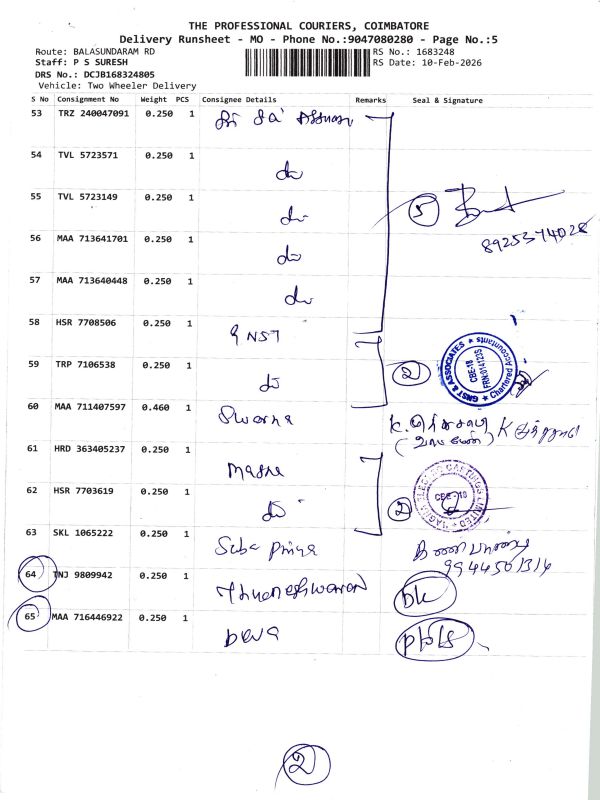 THE PROFESSIONAL COURIERS, COIMBATORE
Delivery Runsheet - MO - Phone No.:9047080280 - Page No.:5
Route: BALASUNDARAM RD
RS No.: 1683248
Staff: P S SURESH
RS Date: 10-Feb-2026
DRS No.: DCJB168324805
Vehicle: Two Wheeler Delivery
S No Consignment No Weight PCS Consignee Details Remarks Seal & Signature
53 TRZ 240047091 0.250 1
54 TVL 5723571 0.250 1 do
55 TVL 5723149 0.250 1 do
5
8925374028
56 MAA 713641701 0.250 1 do
57 MAA 713640448 0.250 1 do
58 HSR 7708506 0.250 1 GNST
59 TRP 7106538 0.250 1 do
2
GNST & ASSOCIATES ★ Chartered Accountants ★
CBE-18
60 MAA 711407597 0.460 1 Swarna
61 HRD 363405237 0.250 1 Magna
62 HSR 7703619 0.250 1 do
2
MAGNA ELECTRO CASTINGS LIMITED
CBE - 18
63 SKL 1065222 0.250 1 Suba Priya
9944501314
64 TNJ 9809942 0.250 1
bk
65 MAA 716446922 0.250 1 Deva
2